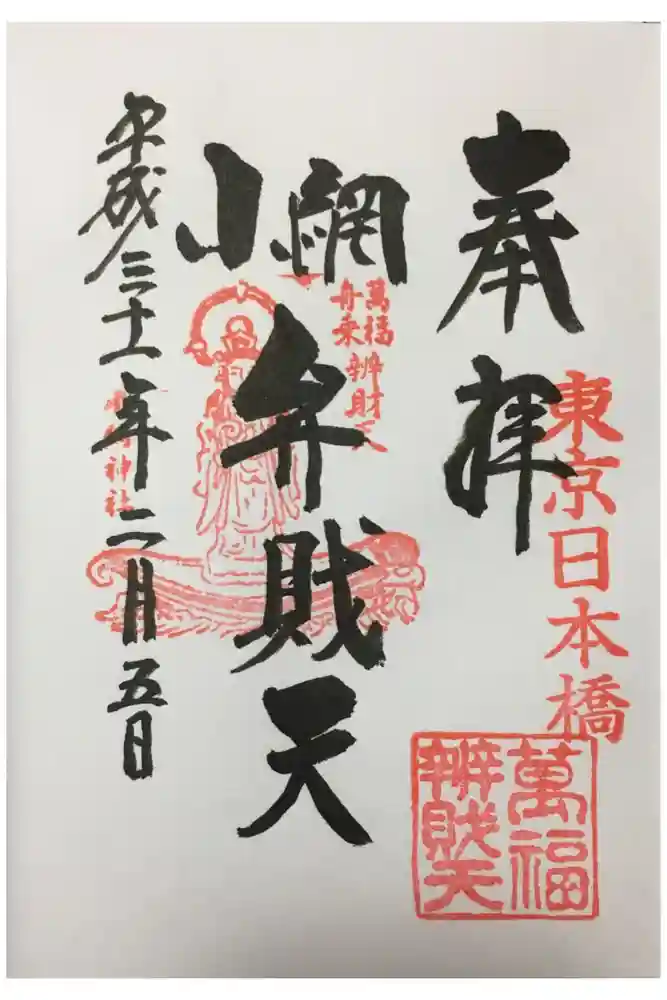 奉拝
東京日本橋
萬福
辨財天
小網
弁財天
萬福
舟乗
辨財天
神社
平成三十一年二月五日